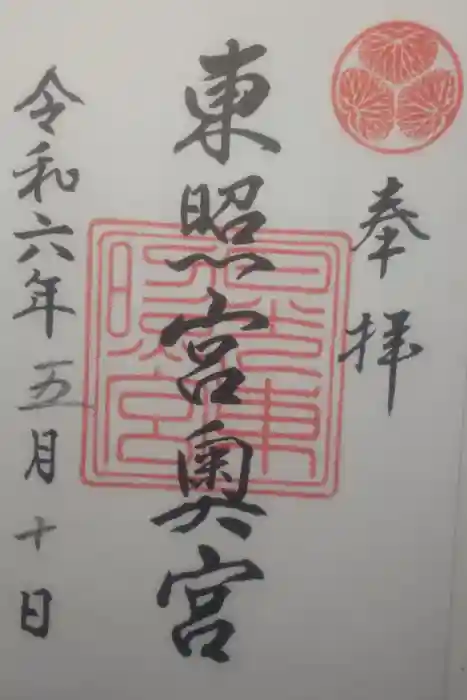 奉拝
東照宮奥宮
令和六年五月十日
日光東照宮